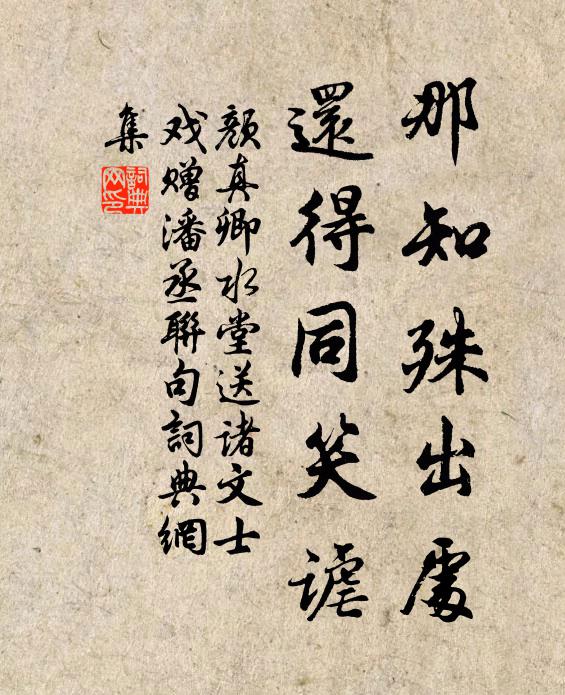 那知殊出處
還得同笑謔
颜真卿水堂送诸文士
戏赠潘丞聯句詞典網
集
詞典
网印